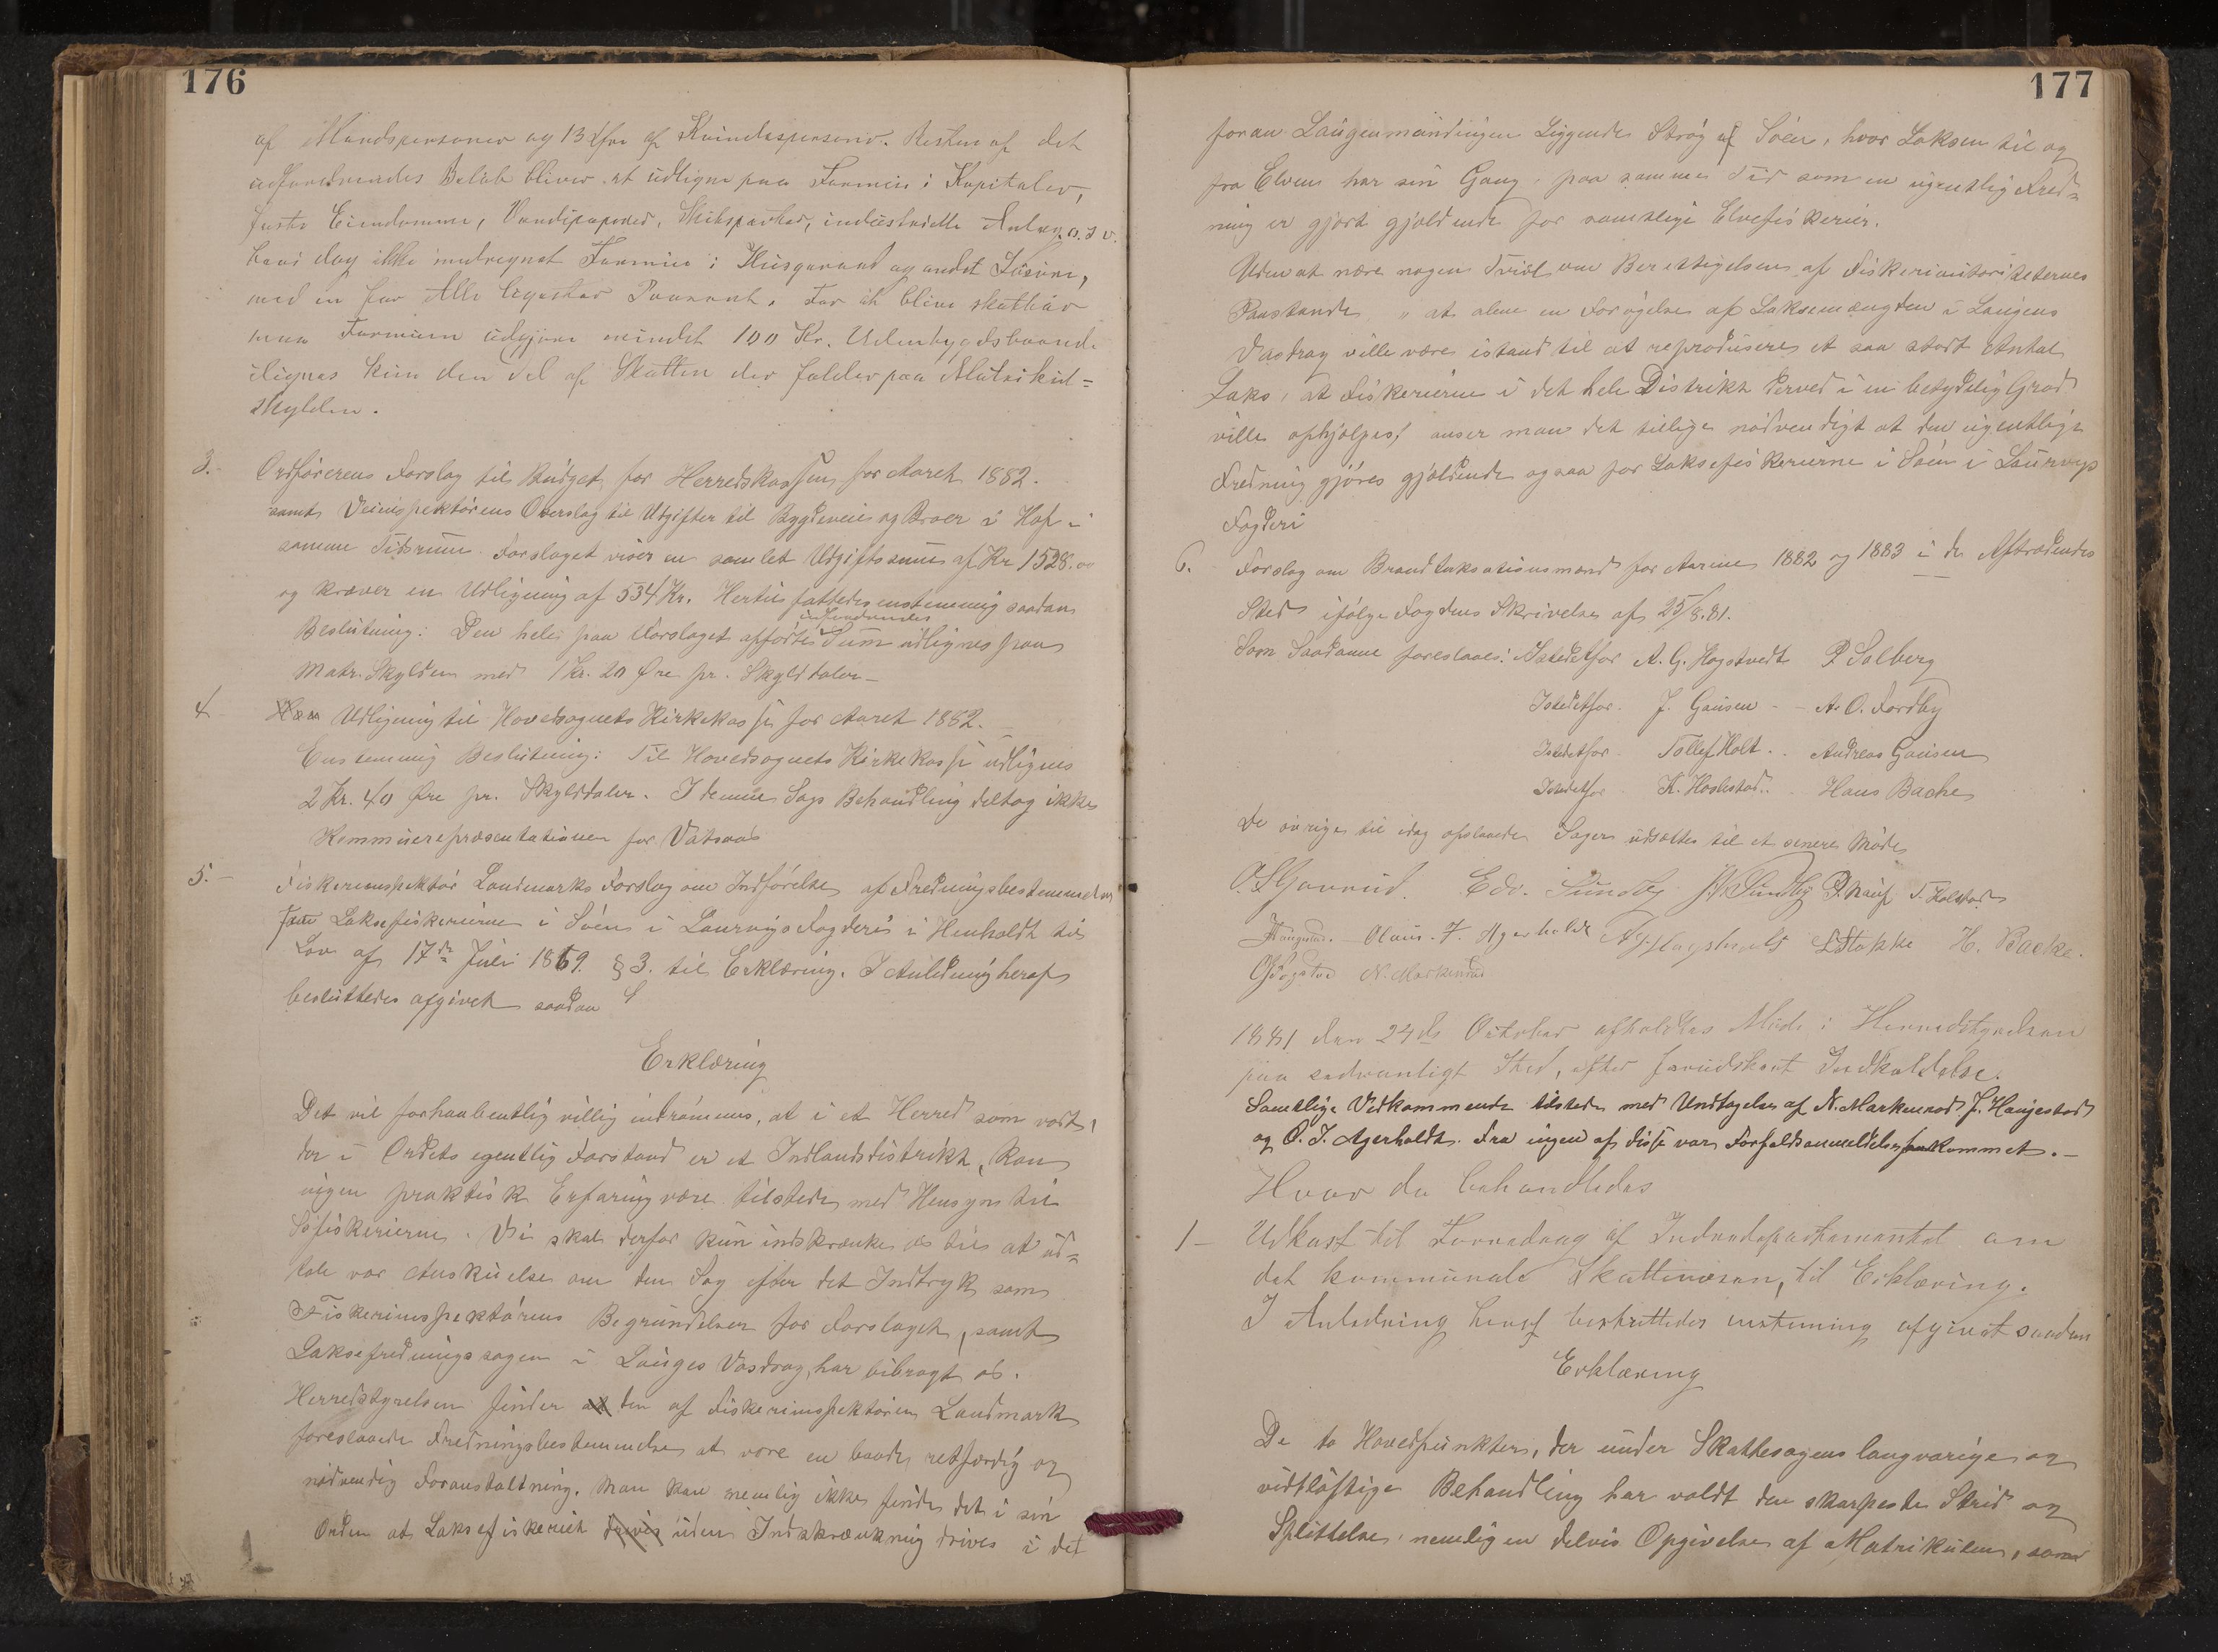 176
af Mandspersoner og 13 Øre af Kvindespersoner. Resten af det
udfordrendes Beløb bliver at udligne paa Formue i Kapitaler,
faste Eiendomme, Værdipapirer, Skibsparter, industrielle Anlæg o. s v.
hvori dog ikke medregnet Formue i Husgeraad og andet Løsøre,
med en for Alle ligestor Procent. For at blive skatbar
maa Formuen udgjøre mindst 100 Kr. Udenbygdsboende
ilignes kun den Del af Skatten der falder paa Matrikul=
skylden.
3. Ordførerens Forslag til Budget for Herredskassen for Aaret 1882.
samt Veiinspektørens Overslag til Udgifter til Bygdeveie og Broer i Hof i
samme Tidsrum. Forslaget viser en samlet Udgiftssum af Kr 1528.00
og kræver en Udligning af 534 Kr. Hertil fattedes enstemmig saadan
udfordrendes
Beslutning: Den hele paa Forslaget opførte Sum udlignes paa
Matr. Skylden med 1 Kr. 20 Øre pr. Skylddaler —
4 Udligning til Hovedsognets Kirkekasse for Aaret 1882. —
Enstemmig Beslutning: Til Hovedsognets Kirkekasse udlignes
2 Kr. 40 Øre pr. Skylddaler. I denne Sags Behandling deltog ikke
Kommunerepræsentationen for Vatsaas
5. — Fiskeriinspektør Landmarks Forslag om Indførelse af Fredningsbestemmelser
for Laksefiskerierne i Søen i Laurvigs Fogderi i Henhold til
Lov af 17de Juli 1869 § 3. til Erklæring. I Anledning heraf
besluttedes afgivet saadan
Erklæring
Det vil forhaabentlig villig indrømmes, at i et Herred som vort,
der i Ordets egentlig Forstand er et Indlandsdistrikt, kan
ingen praktisk Erfaring være tilstede med Hensyn til
Søfiskerierne. Vi skal derfor kun indskrænke os til at ud=
tale vor Anskuelse om den Sag efter det Indtryk som
Fiskeriinspektørens Begrundelser for Forslaget, samt
Laksefredningssagen i Laugens Vasdrag, har bibragt os.
Herredstyrelsen finder at den af Fiskeriinspektøren Landmark
foreslaaede Fredningsbestemmelse at være en baade retfærdig og
nødvendig Foranstaltning. Man kan nemlig ikke finde det i sin
Orden at Laksefiskeriet drives uden Indskrænkning drives i det
177
foran Laugenmundingen liggende Strøg af Søen, hvor Laksen til og
fra Elven har sin Gang, paa samme Tid som en ugentlig Fred=
ning er gjort gjældende for samtlige Elvefiskerier.
Uden at nære nogen Tvivl om Berettigelsen af Fiskeriautoriteternes
Paastande, " at alene en Forøgelse af Laksemængden i Laugens
Vasdrag ville være istand til at reproducere et saa stort Antal
Laks, at Fiskerierne i det hele Distrikt derved i en betydelig Grad
ville ophjælpes, anser man det tillige nødvendigt at den ugentlige
Fredning gjøres gjældende ogsaa for Laksefiskerierne i Søen i Laurvigs
Fogderi
6. Forslag om Brandtaksationsmænd for Aarene 1882 og 1883 i de Aftrædendes
Sted ifølge Fogdens Skrivelse af 25/8. 81.
Som Saadanne foreslaaes: Istedetfor A. G. Hagstvedt P Solberg
Istedetfor J. Gausen - - A. O. Fordby
Istedetfor Tollef Holt . . Andreas Gausen
Istedetfor K. Haslestad . . Hans Bache
De øvrige til idag opslaaede Sager udsættes til et senere Møde
Edv. Sundby T. Holstad
Olaus. F. Agerholdt L Stokke H. Backe.
N. Markerud
1881 den 24de October afholdtes Møde i Herredstyrelsen
paa sedvanligt Sted, efter forudskeet Indkaldelse.
Samtlige Vedkommende tilstede med Undtagelse af N. Markerud J. Haugestad
og O. F. Agerholdt. Fra ingen af disse var Forfaldsanmeldelse fremkommet. —
Hvor da behandledes
1 — Udkast til Foredrag af Indredepartementet om
det kommunale Skattevæsen, til Erklæring.
I Anledning heraf besluttedes enstemmig afgivet saadan
Erklæring
De to Hovedpunkter, der under Skattesagens langvarige og
vidtløftige Behandling har voldt den skarpeste Strid og
Splittelse, nemlig en delvis Opgivelse af Matrikulen, som